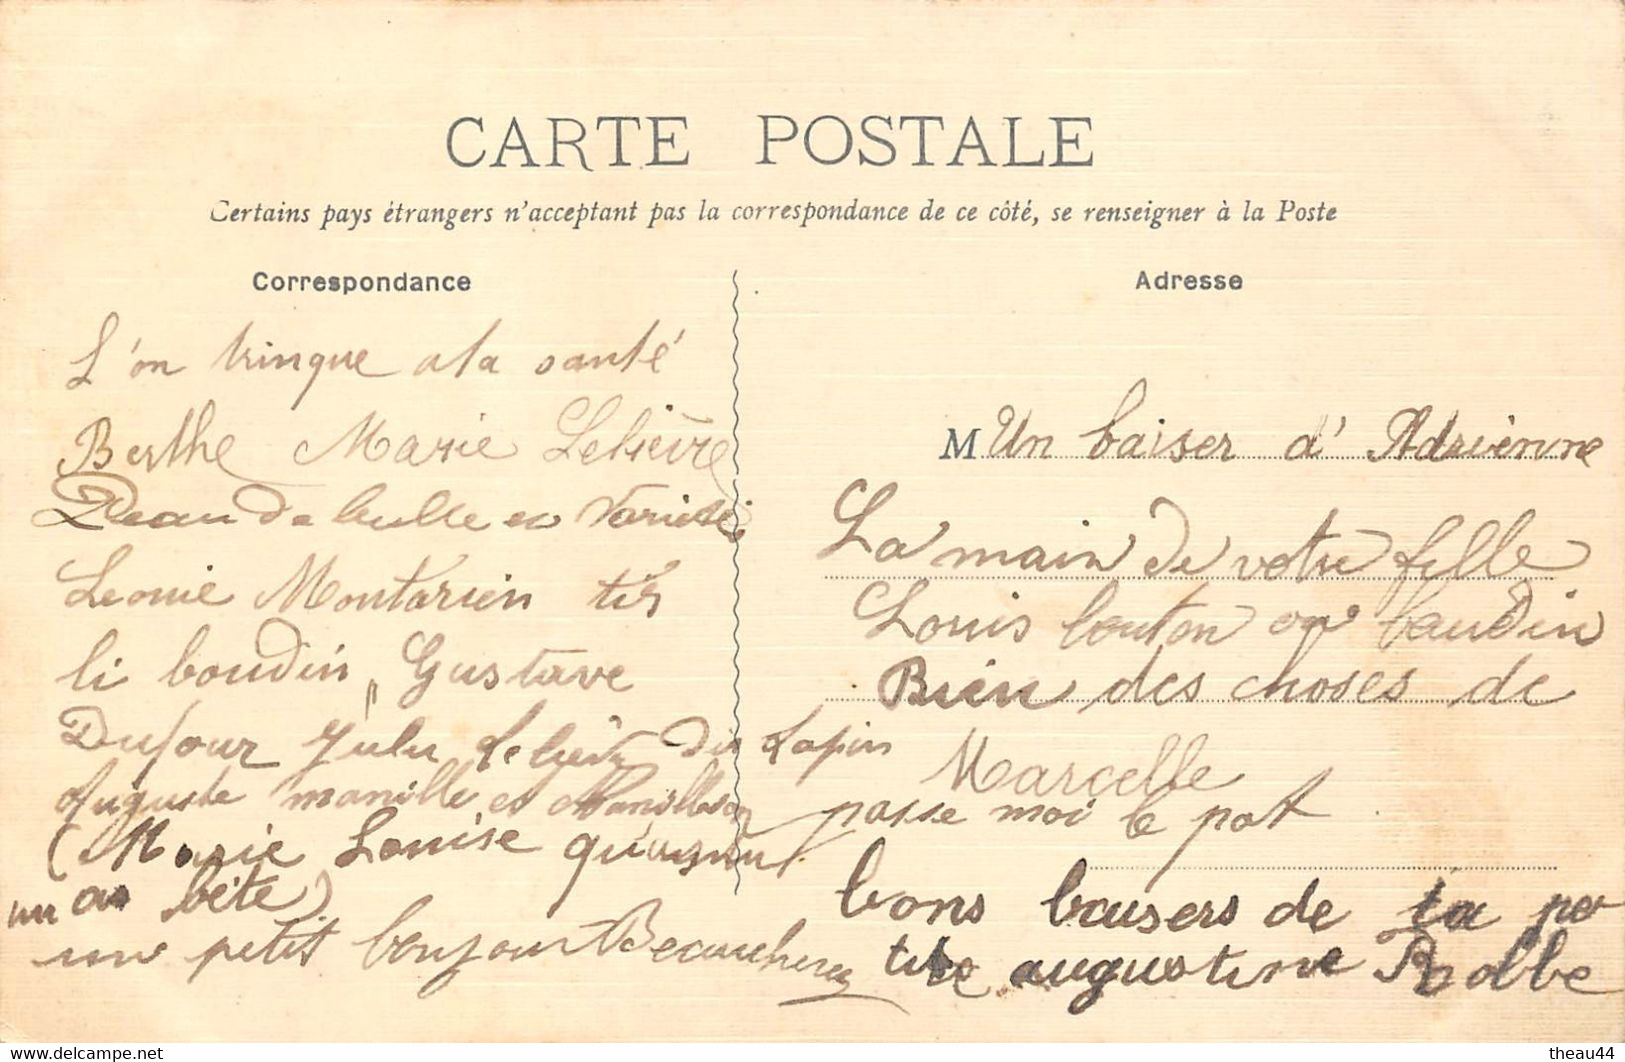 CARTE POSTALE
Certains pays étrangers n'acceptant pas la correspondance de ce côté, se renseigner à la Poste
Correspondance
L'on trinque a la santé
Berthe Marie Lelièvre
Leonie Montarien
li boudin, Gustave
Dufour Lelièvre dis Lapin
Auguste manille et Manilleson
(Marie Louise
un as bête)
un petit bonjour
Adresse
M Un baiser d'Adriènne
La main de votre fille
Louis bouton ou baudin
Bien des choses de
Marcelle
passe moi le pot
bons baisers de ta pe
tite augustine Robbe
theau44